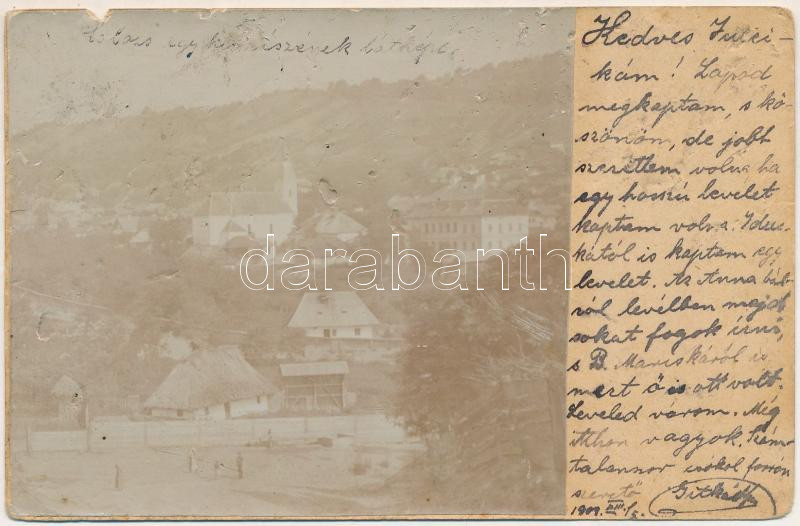 egy kis részének látképe
darabanth
Kedves Julci-
kám! Lapod
megkaptam, s kö-
szönöm, de jobb
szerettem volna ha
egy hosszú levelet
kaptam volna. Idus-
kától is kaptam egy
levelet. Az Anna bál-
ról levélben majd
sokat fogok írni,
s B. Mariskáról is
mert ő is ott volt.
Leveled várom. Még
itthon vagyok. Szám-
talanszor csókol forrón
szerető Gitkád
1909. VIII/5.